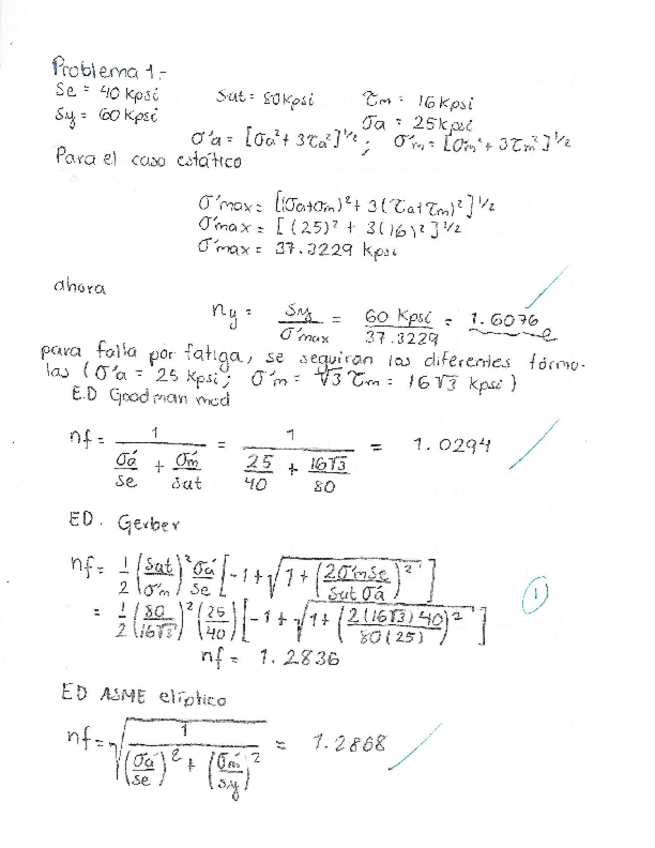 Problema 1.-
Se = 40 Kpsi    Sut = 80Kpsi    τm = 16 Kpsi
Sy = 60 Kpsi    σa = 25 Kpsi
σ'a = [σa² + 3τa²]^1/2 ; σ'm = [σm² + 3τm²]^1/2
Para el caso estático
σ'max = [(σa+σm)² + 3(τa+τm)²]^1/2
σ'max = [(25)² + 3(16)²]^1/2
σ'max = 37.3229 Kpsi
ahora
ny = Sy/σ'max = 60 Kpsi/37.3229 = 1.6076
para falla por fatiga, se seguiran las diferentes fórmu-
las (σ'a = 25 Kpsi; σ'm = √3 τm = 16√3 Kpsi)
E.D Goodman mod
nf = 1/(σ'a/Se + σ'm/Sut) = 1/(25/40 + 16√3/80) = 1.0294
ED. Gerber
nf = 1/2 (Sut/σ'm)² σ'a/Se [-1 + √(1 + (2σ'm Se/Sut σ'a)²)]
= 1/2 (80/16√3)² (25/40) [-1 + √(1 + (2(16√3)40/80(25))²)]
1
nf = 1.2836
ED ASME elíptico
nf = √(1/((σ'a/Se)² + (σ'm/Sy)²)) = 1.2868